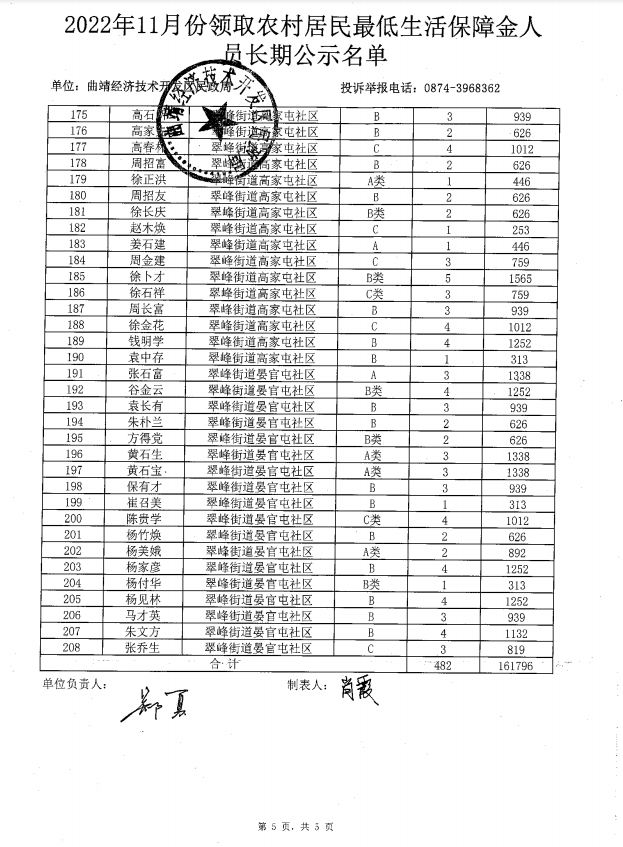 2022年11月份领取农村居民最低生活保障金人
员长期公示名单
单位: 曲靖经济技术开发区民政局 投诉举报电话: 0874-3968362
175 高石 翠峰街道高家屯社区 B 3 939
176 高家 翠峰街道高家屯社区 B 2 626
177 高春 翠峰街道高家屯社区 C 4 1012
178 周招富 翠峰街道高家屯社区 B 2 626
179 徐正洪 翠峰街道高家屯社区 A类 1 446
180 周招友 翠峰街道高家屯社区 B 2 626
181 徐长庆 翠峰街道高家屯社区 B类 2 626
182 赵木焕 翠峰街道高家屯社区 C 1 253
183 姜石建 翠峰街道高家屯社区 A 1 446
184 周金建 翠峰街道高家屯社区 C 3 759
185 徐卜才 翠峰街道高家屯社区 B类 5 1565
186 徐石祥 翠峰街道高家屯社区 C类 3 759
187 周长富 翠峰街道高家屯社区 B 3 939
188 徐金花 翠峰街道高家屯社区 C 4 1012
189 钱明学 翠峰街道高家屯社区 B 4 1252
190 袁中存 翠峰街道高家屯社区 B 1 313
191 张石富 翠峰街道晏官屯社区 A 3 1338
192 谷金云 翠峰街道晏官屯社区 B类 4 1252
193 袁长有 翠峰街道晏官屯社区 B 3 939
194 朱朴兰 翠峰街道晏官屯社区 B 2 626
195 方得党 翠峰街道晏官屯社区 B类 2 626
196 黄石生 翠峰街道晏官屯社区 A类 3 1338
197 黄石宝 翠峰街道晏官屯社区 A类 3 1338
198 保有才 翠峰街道晏官屯社区 B 3 939
199 崔召美 翠峰街道晏官屯社区 B 1 313
200 陈贵学 翠峰街道晏官屯社区 C类 4 1012
201 杨竹焕 翠峰街道晏官屯社区 B 2 626
202 杨美娥 翠峰街道晏官屯社区 A类 2 892
203 杨家彦 翠峰街道晏官屯社区 B 4 1252
204 杨付华 翠峰街道晏官屯社区 B类 1 313
205 杨见林 翠峰街道晏官屯社区 B 4 1252
206 马才英 翠峰街道晏官屯社区 B 3 939
207 朱文方 翠峰街道晏官屯社区 B 4 1132
208 张乔生 翠峰街道晏官屯社区 C 3 819
合计 482 161796
单位负责人: 郑夏 制表人: 肖霞
第 5 页, 共 5 页